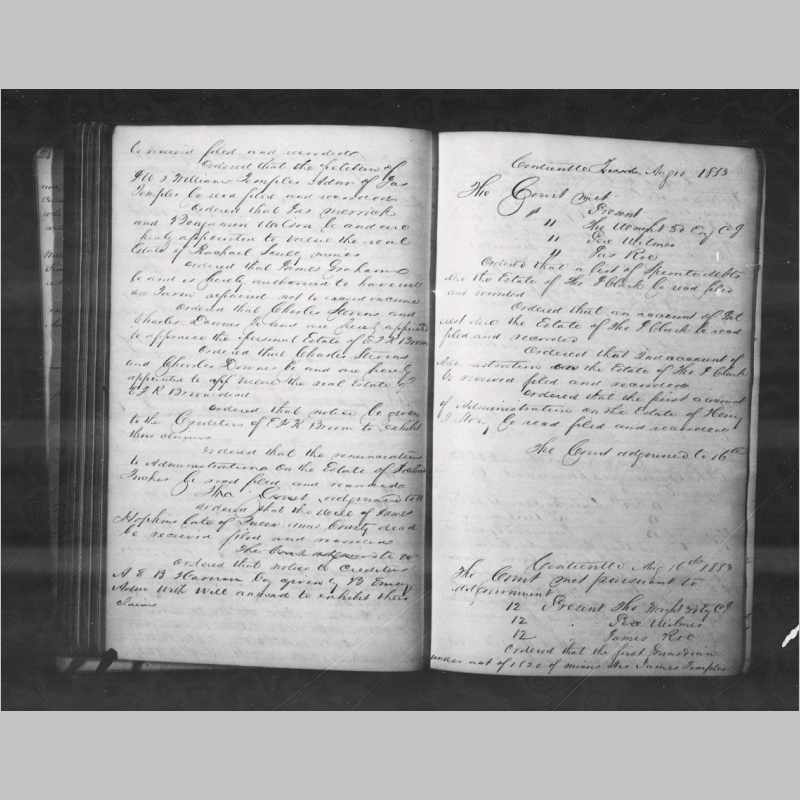 be received filed and recorded
Ordered that the petition of
& William Temples Admr of Jas
Temples be read filed and recorded
Ordered that Jas Merrick
and Benjamin Watson be and are
hereby appointed to value the real
Estate of Rachael minor
Ordered that James Graham
be and is hereby authorised to have
on Farm repaired not to exceed
Ordered that Charles Stevens and
Charles Downes be and are hereby appointed
to appraise the personal Estate of E F K Brown
Ordered that Charles Stevens
and Charles Downes be and are hereby
appointed to value the real Estate of
E F K Brown decd
Ordered that notice be given
to the Creditors of E F K Brown to exhibit
their claims
Ordered that the renunciation
to Administration on the Estate of
be read filed and recorded
The Court adjourned to
Ordered that the Will of James
Hopkins late of Queen Anns County decd
be received filed and recorded
The Court adjourned to
Ordered that notice to Creditors
A E B be given by B Emory
Admr With Will annexed to exhibit their
Claims
Centreville Tuesday Aug 10 1853
The Court met
" Present
" The Wright 3d Esq C J
" Pere Wilmer
" Jas Roe
Ordered that a list of Sperate debts
due the Estate of Tho J Clark be read filed
and recorded
Ordered that an account of
due the Estate of Tho J Clark be read
filed and recorded
Ordered that 2nd account of
Administration on the Estate of Tho J Clark
be received filed and recorded
Ordered that the first account
of Administration on the Estate of Henry
be read filed and recorded
The Court adjourned to 16th
Centreville Aug 16th 1853
The Court met pursuant to
adjournment
12 Present Tho Wright 3d Esq C J
12 " Pere Wilmer
12 James Roe
Ordered that the first Guardian
under act of 1820 of James Temples